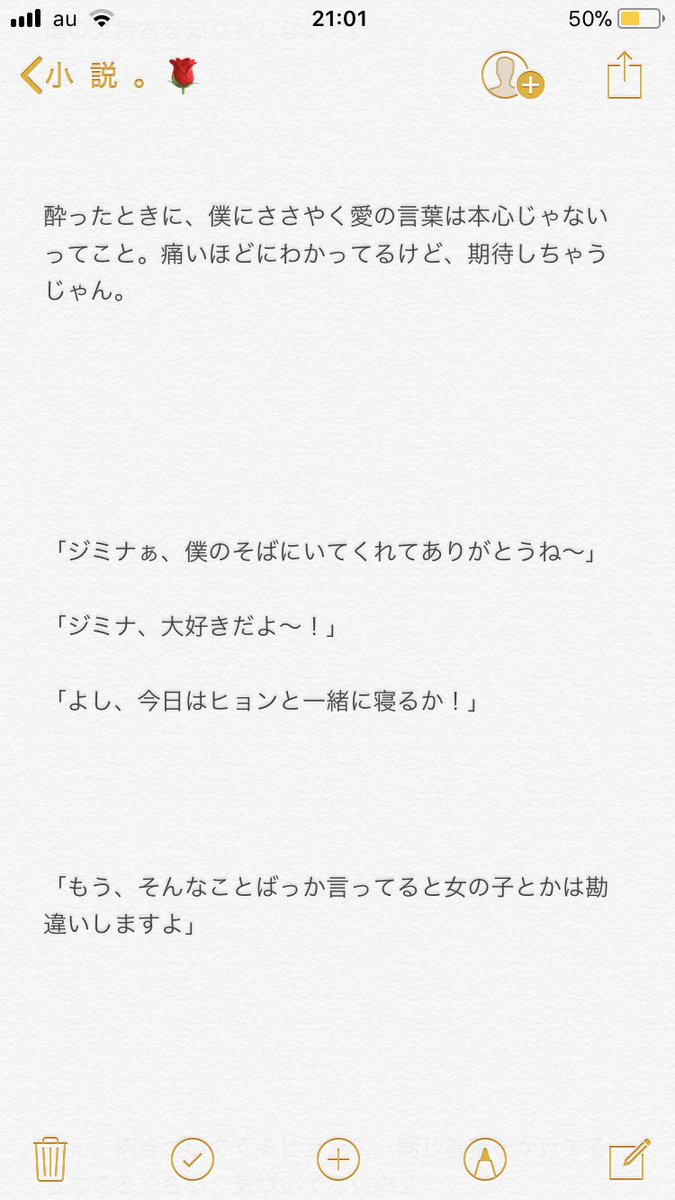 au 21:01 50%
小 説 。🌹
酔ったときに、僕にささやく愛の言葉は本心じゃない
ってこと。痛いほどにわかってるけど、期待しちゃう
じゃん。
「ジミナぁ、僕のそばにいてくれてありがとうね〜」
「ジミナ、大好きだよ〜！」
「よし、今日はヒョンと一緒に寝るか！」
「もう、そんなことばっか言ってると女の子とかは勘
違いしますよ」